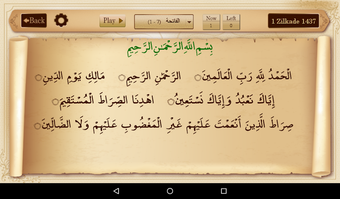 Back Play الفاتحة (1 - 7) Now 1 Left 2 1 Zilkade 1437
بِسْمِ اللَّهِ الرَّحْمَٰنِ الرَّحِيمِ
الْحَمْدُ لِلَّهِ رَبِّ الْعَالَمِينَ الرَّحْمَٰنِ الرَّحِيمِ مَالِكِ يَوْمِ الدِّينِ
إِيَّاكَ نَعْبُدُ وَإِيَّاكَ نَسْتَعِينُ اهْدِنَا الصِّرَاطَ الْمُسْتَقِيمَ
صِرَاطَ الَّذِينَ أَنْعَمْتَ عَلَيْهِمْ غَيْرِ الْمَغْضُوبِ عَلَيْهِمْ وَلَا الضَّالِّينَ